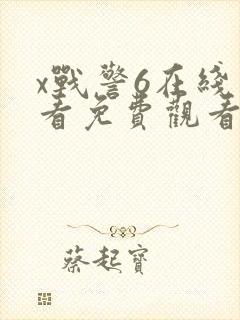 x戰警6在綫
看免費觀看
蔡起寶